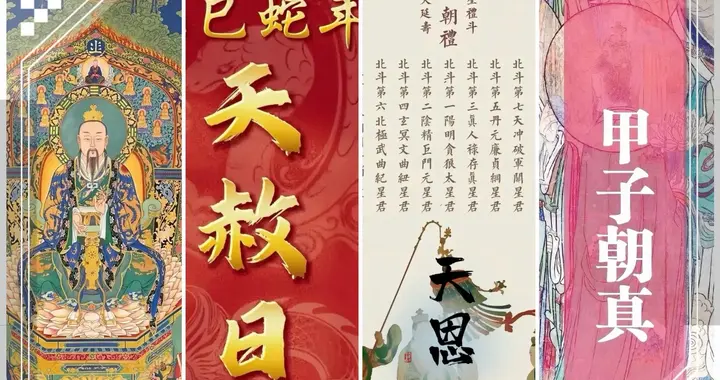 巳蛇年
天赦日
星禮斗
朝禮
延壽
北斗第七天冲破軍關星君
北斗第五丹元廉貞綱星君
北斗第三眞人祿存眞星君
北斗第一陽明貪狼太星君
北斗第二陰精巨門元星君
北斗第四玄冥文曲紐星君
北斗第六北極武曲紀星君
天恩
甲子朝真